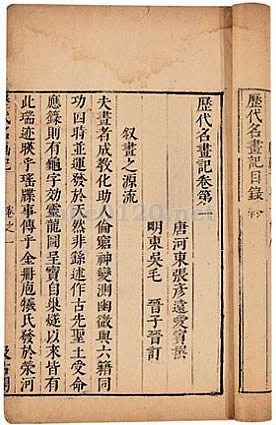 歷代名畫記目錄
歷代名畫記卷第一
唐河東張彥遠愛賓撰
明東吳毛 晉子晉訂
叙畫之源流
夫畫者成教化助人倫窮神變測幽微與六籍同
功四時並運發於天然非繇述作古先聖王受命
應籙則有龜字効靈龍圖呈寶自巢燧以來皆有
此瑞迹暎乎瑤牒事傳乎金冊庖犧氏發於滎河
歷代名畫記 卷之一 汲古閣